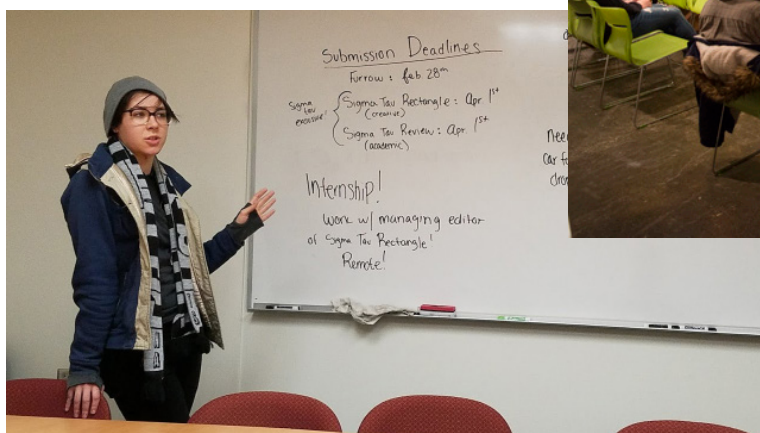 Submission Deadlines
Furrow : feb 28th
Sigma Tau exclusive!
Sigma Tau Rectangle : Apr 1st
(creative)
Sigma Tau Review : Apr. 1st
(academic)
Internship!
work w/ managing editor
of Sigma Tau Rectangle!
Remote!
Need
car fo